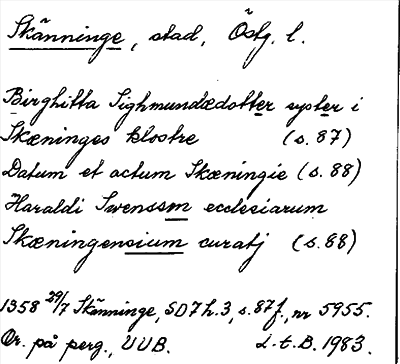 Skänninge, stad, Östg. l.
Birghitta Sighmundædotter syster i
Skæninges klostre (s. 87)
Datum et actum Skæningie (s. 88)
Haraldi Swenssm ecclesiarum
Skæningensium curatj (s. 88)
1358 29/7 Skänninge, SD7h.3, s. 87f., nr 5955.
Or. på perg., UUB. L.t.B. 1983.